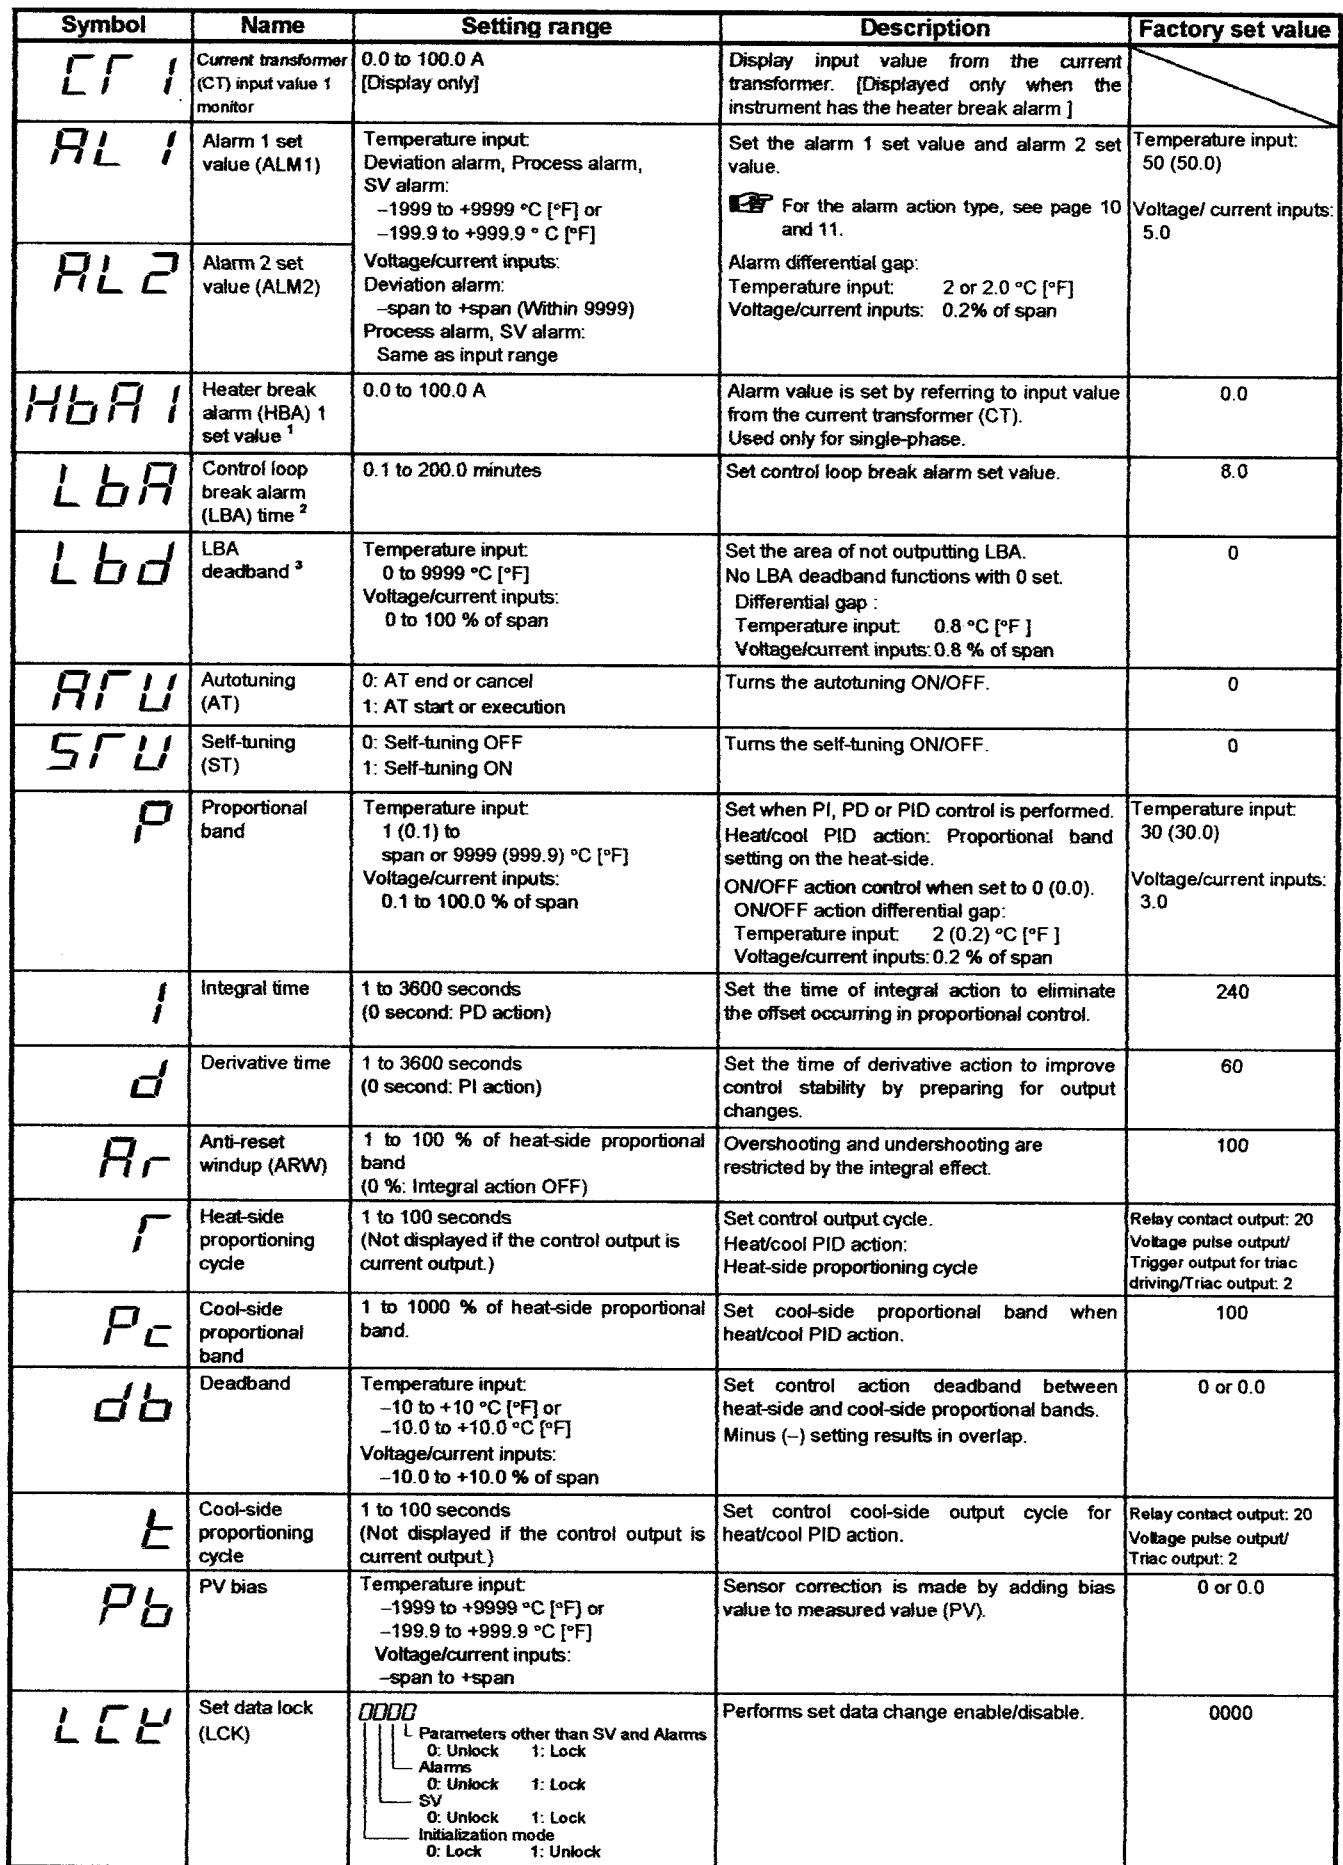 Symbol Name Setting range Description Factory set value
CT1
Current transformer
(CT) input value 1
monitor
0.0 to 100.0 A
[Display only]
Display input value from the current
transformer. [Displayed only when the
instrument has the heater break alarm ]
AL1
Alarm 1 set
value (ALM1)
Temperature input:
Deviation alarm, Process alarm,
SV alarm:
−1999 to +9999 °C [°F] or
−199.9 to +999.9 ° C [°F]
Set the alarm 1 set value and alarm 2 set
value.
For the alarm action type, see page 10
and 11.
Temperature input:
50 (50.0)
Voltage/ current inputs:
5.0
AL2
Alarm 2 set
value (ALM2)
Voltage/current inputs:
Deviation alarm:
−span to +span (Within 9999)
Process alarm, SV alarm:
Same as input range
Alarm differential gap:
Temperature input: 2 or 2.0 °C [°F]
Voltage/current inputs: 0.2% of span
HbA1
Heater break
alarm (HBA) 1
set value 1
0.0 to 100.0 A
Alarm value is set by referring to input value
from the current transformer (CT).
Used only for single-phase.
0.0
LbA
Control loop
break alarm
(LBA) time 2
0.1 to 200.0 minutes
Set control loop break alarm set value.
8.0
Lbd
LBA
deadband 3
Temperature input:
0 to 9999 °C [°F]
Voltage/current inputs:
0 to 100 % of span
Set the area of not outputting LBA.
No LBA deadband functions with 0 set.
Differential gap :
Temperature input: 0.8 °C [°F ]
Voltage/current inputs: 0.8 % of span
0
ATU
Autotuning
(AT)
0: AT end or cancel
1: AT start or execution
Turns the autotuning ON/OFF.
0
STU
Self-tuning
(ST)
0: Self-tuning OFF
1: Self-tuning ON
Turns the self-tuning ON/OFF.
0
P
Proportional
band
Temperature input:
1 (0.1) to
span or 9999 (999.9) °C [°F]
Voltage/current inputs:
0.1 to 100.0 % of span
Set when PI, PD or PID control is performed.
Heat/cool PID action: Proportional band
setting on the heat-side.
ON/OFF action control when set to 0 (0.0).
ON/OFF action differential gap:
Temperature input: 2 (0.2) °C [°F ]
Voltage/current inputs: 0.2 % of span
Temperature input:
30 (30.0)
Voltage/current inputs:
3.0
I
Integral time
1 to 3600 seconds
(0 second: PD action)
Set the time of integral action to eliminate
the offset occurring in proportional control.
240
d
Derivative time
1 to 3600 seconds
(0 second: PI action)
Set the time of derivative action to improve
control stability by preparing for output
changes.
60
Ar
Anti-reset
windup (ARW)
1 to 100 % of heat-side proportional
band
(0 %: Integral action OFF)
Overshooting and undershooting are
restricted by the integral effect.
100
T
Heat-side
proportioning
cycle
1 to 100 seconds
(Not displayed if the control output is
current output.)
Set control output cycle.
Heat/cool PID action:
Heat-side proportioning cycle
Relay contact output: 20
Voltage pulse output/
Trigger output for triac
driving/Triac output: 2
Pc
Cool-side
proportional
band
1 to 1000 % of heat-side proportional
band.
Set cool-side proportional band when
heat/cool PID action.
100
db
Deadband
Temperature input:
−10 to +10 °C [°F] or
−10.0 to +10.0 °C [°F]
Voltage/current inputs:
−10.0 to +10.0 % of span
Set control action deadband between
heat-side and cool-side proportional bands.
Minus (−) setting results in overlap.
0 or 0.0
t
Cool-side
proportioning
cycle
1 to 100 seconds
(Not displayed if the control output is
current output.)
Set control cool-side output cycle for
heat/cool PID action.
Relay contact output: 20
Voltage pulse output/
Triac output: 2
Pb
PV bias
Temperature input:
−1999 to +9999 °C [°F] or
−199.9 to +999.9 °C [°F]
Voltage/current inputs:
−span to +span
Sensor correction is made by adding bias
value to measured value (PV).
0 or 0.0
LCK
Set data lock
(LCK)
0000
Parameters other than SV and Alarms
0: Unlock 1: Lock
Alarms
0: Unlock 1: Lock
SV
0: Unlock 1: Lock
Initialization mode
0: Lock 1: Unlock
Performs set data change enable/disable.
0000